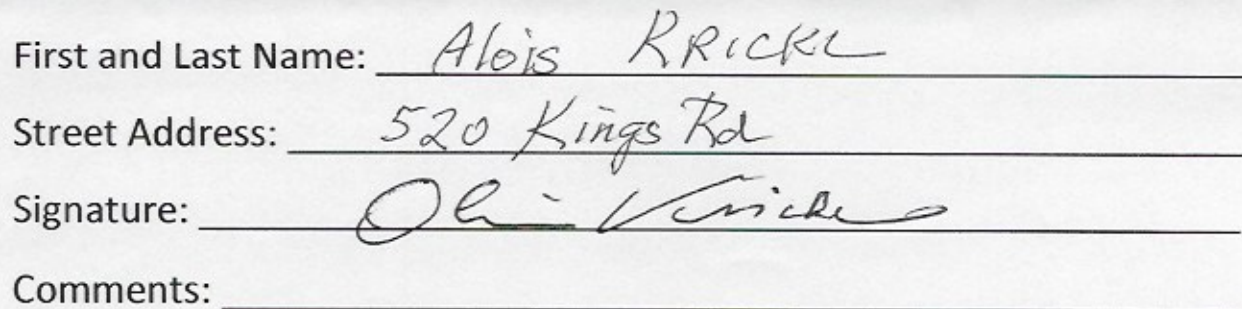 First and Last Name: Alois KRICKL
Street Address: 520 Kings Rd
Signature:
Comments: